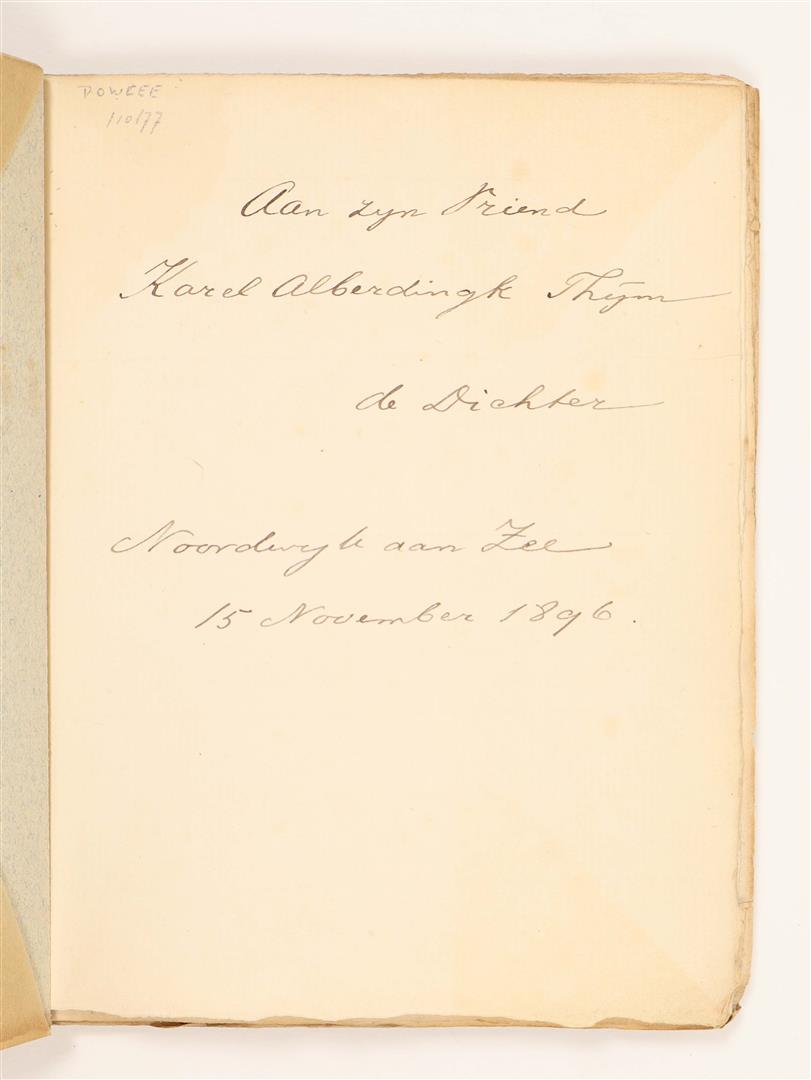 110177
Aan zyn Vriend
Karel Alberdingk Thÿm
de Dichter
Noordwyk aan Zee
15 November 1896.